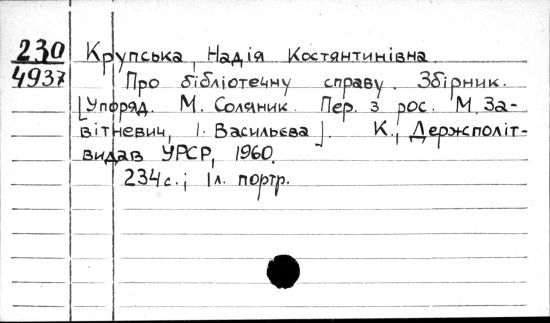 230
4937
Крупська, Надія Костянтинівна.
Про бібліотечну справу. Збірник.
[Упоряд. М. Соляник. Пер. з рос. М. За-
вітневич, І. Васильєва]. К., Держполіт-
видав УРСР, 1960.
234 с.; 1 л. портр.